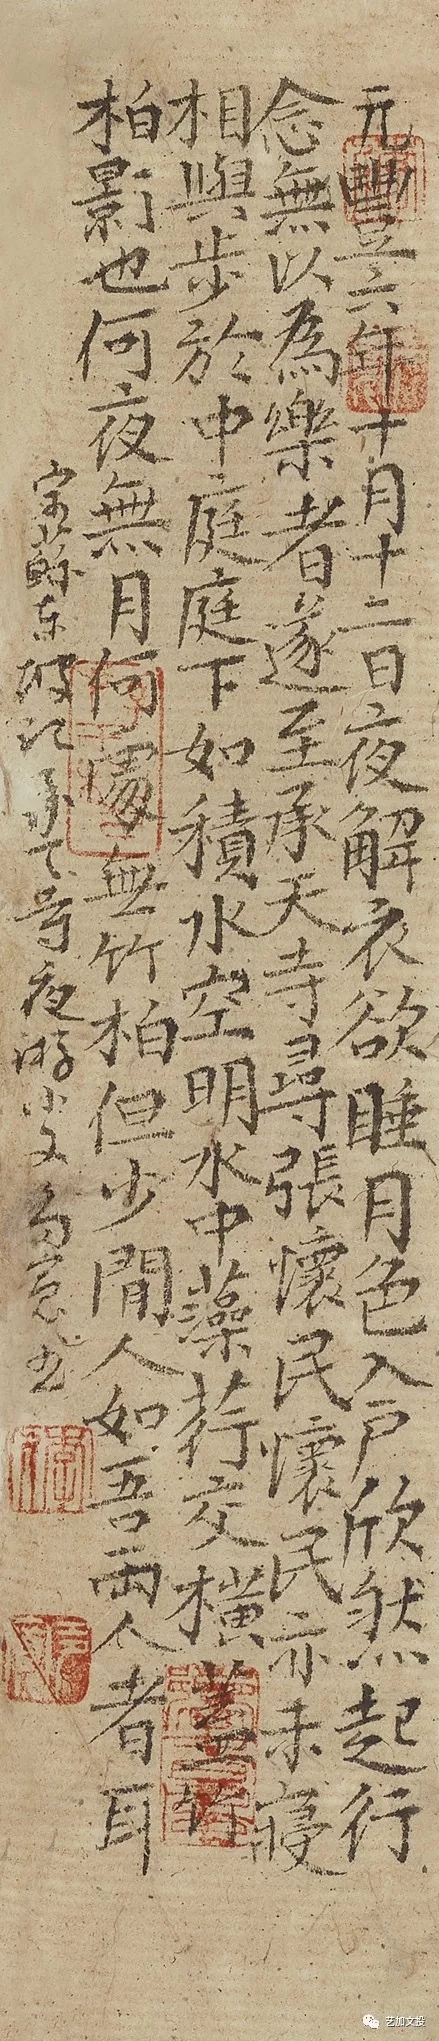 元豐六年十月十二日夜解衣欲睡月色入戶欣然起行
念無以為樂者遂至承天寺尋張懷民懷民亦未寢
相與步於中庭庭下如積水空明水中藻荇交橫蓋竹
柏影也何夜無月何處無竹柏但少閒人如吾兩人者耳
宋蘇東坡記承天寺夜游小文
艺加文投